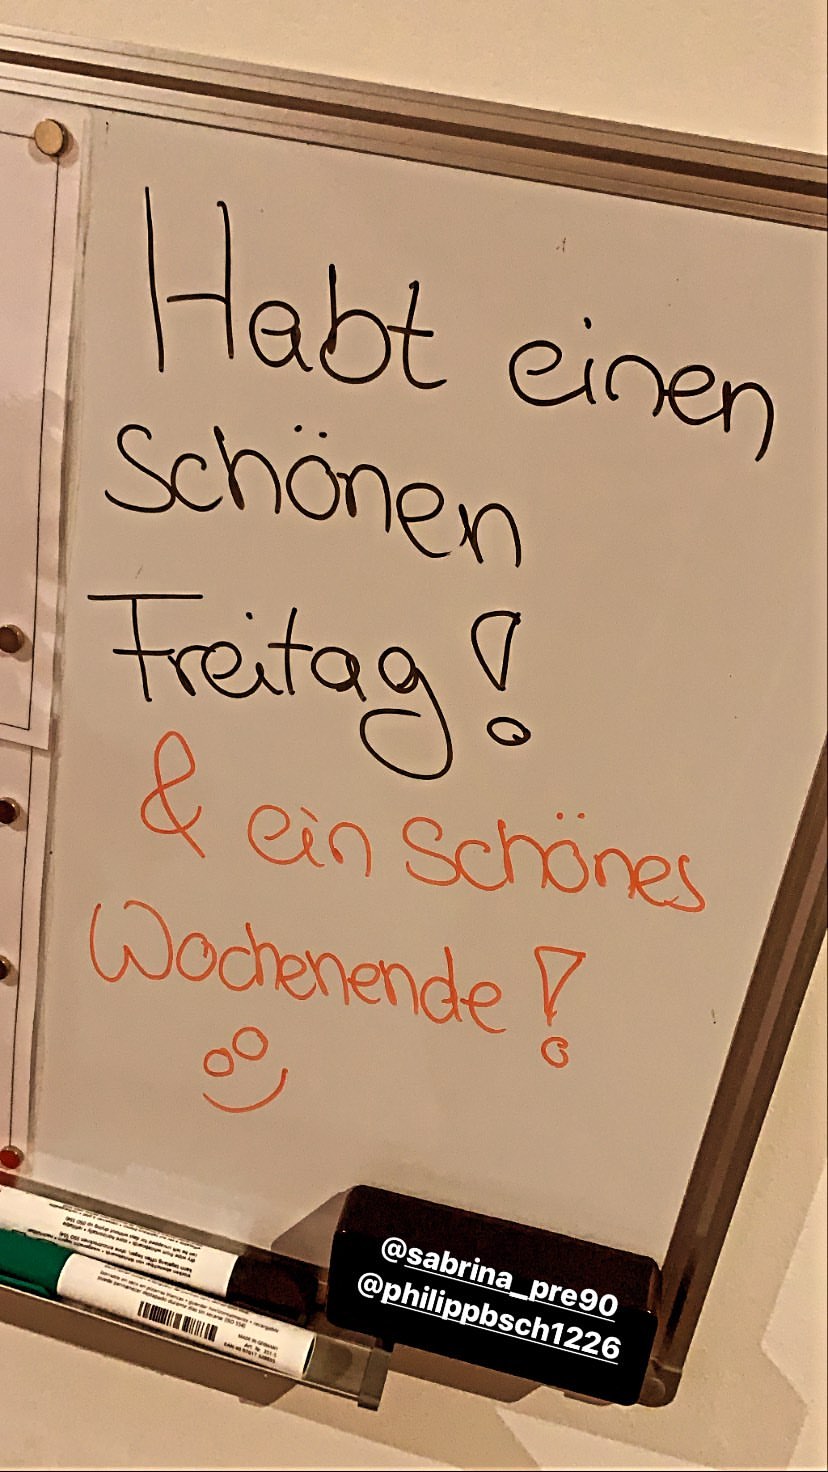 Habt einen
schönen
Freitag!
& ein schönes
Wochenende!
@sabrina_pre90
@philippbsch1226
MADE IN GERMANY